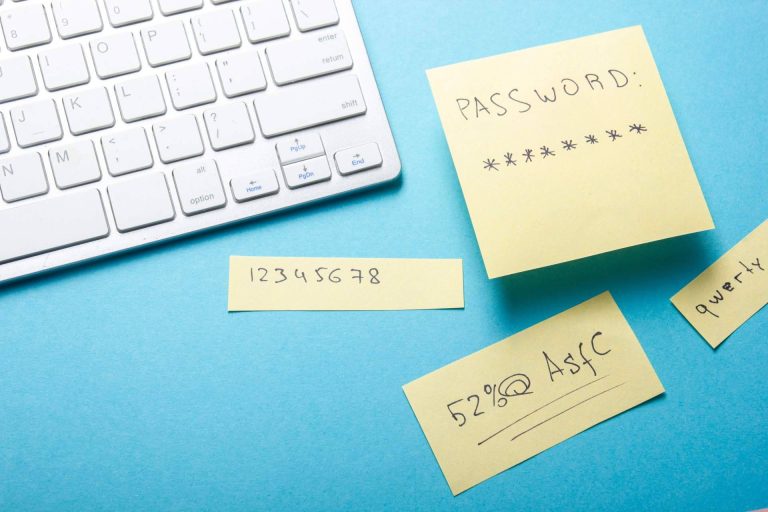 8 9
U I O P { [ } ] | \
enter
return
J K L : ; " '
N M < , > . ? / shift
alt
option
Home
PgUp
PgDn
End
PASSWORD:
*******
12345678
qwerty
52%@ AsfC